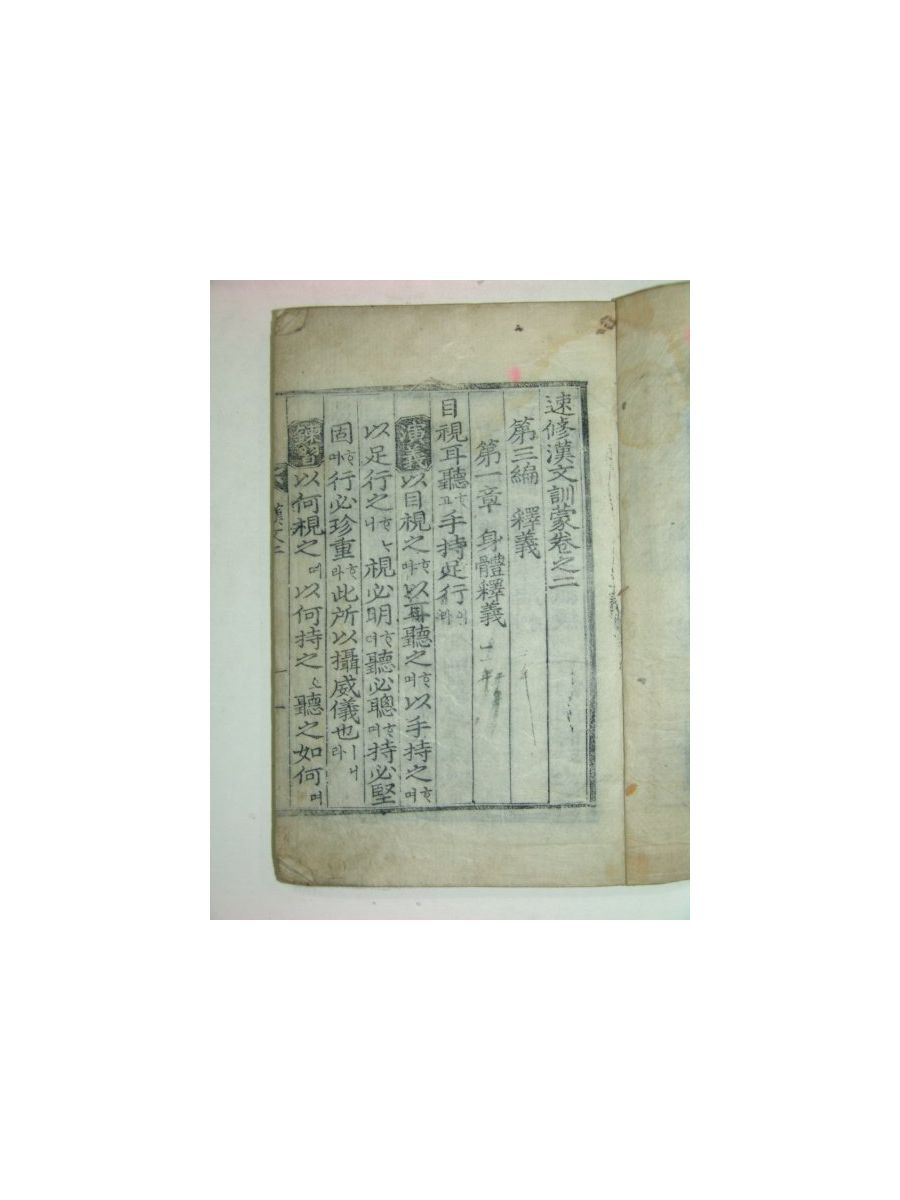 速修漢文訓蒙卷之二
第三編 釋義
第一章 身體釋義
目視耳聽ᄒᆞ고手持足行이라
演義 以目視之ᄒᆞ며以耳聽之ᄒᆞ며以手持之ᄒᆞ며
以足行之ᄒᆞᄂᆞ니視必明ᄒᆞ며聽必聰ᄒᆞ며持必堅
固ᄒᆞ며行必珍重ᄒᆞ라此所以攝威儀也ㅣ니라
鍊習 以何視之며以何持之오聽之如何며
漢文二 一